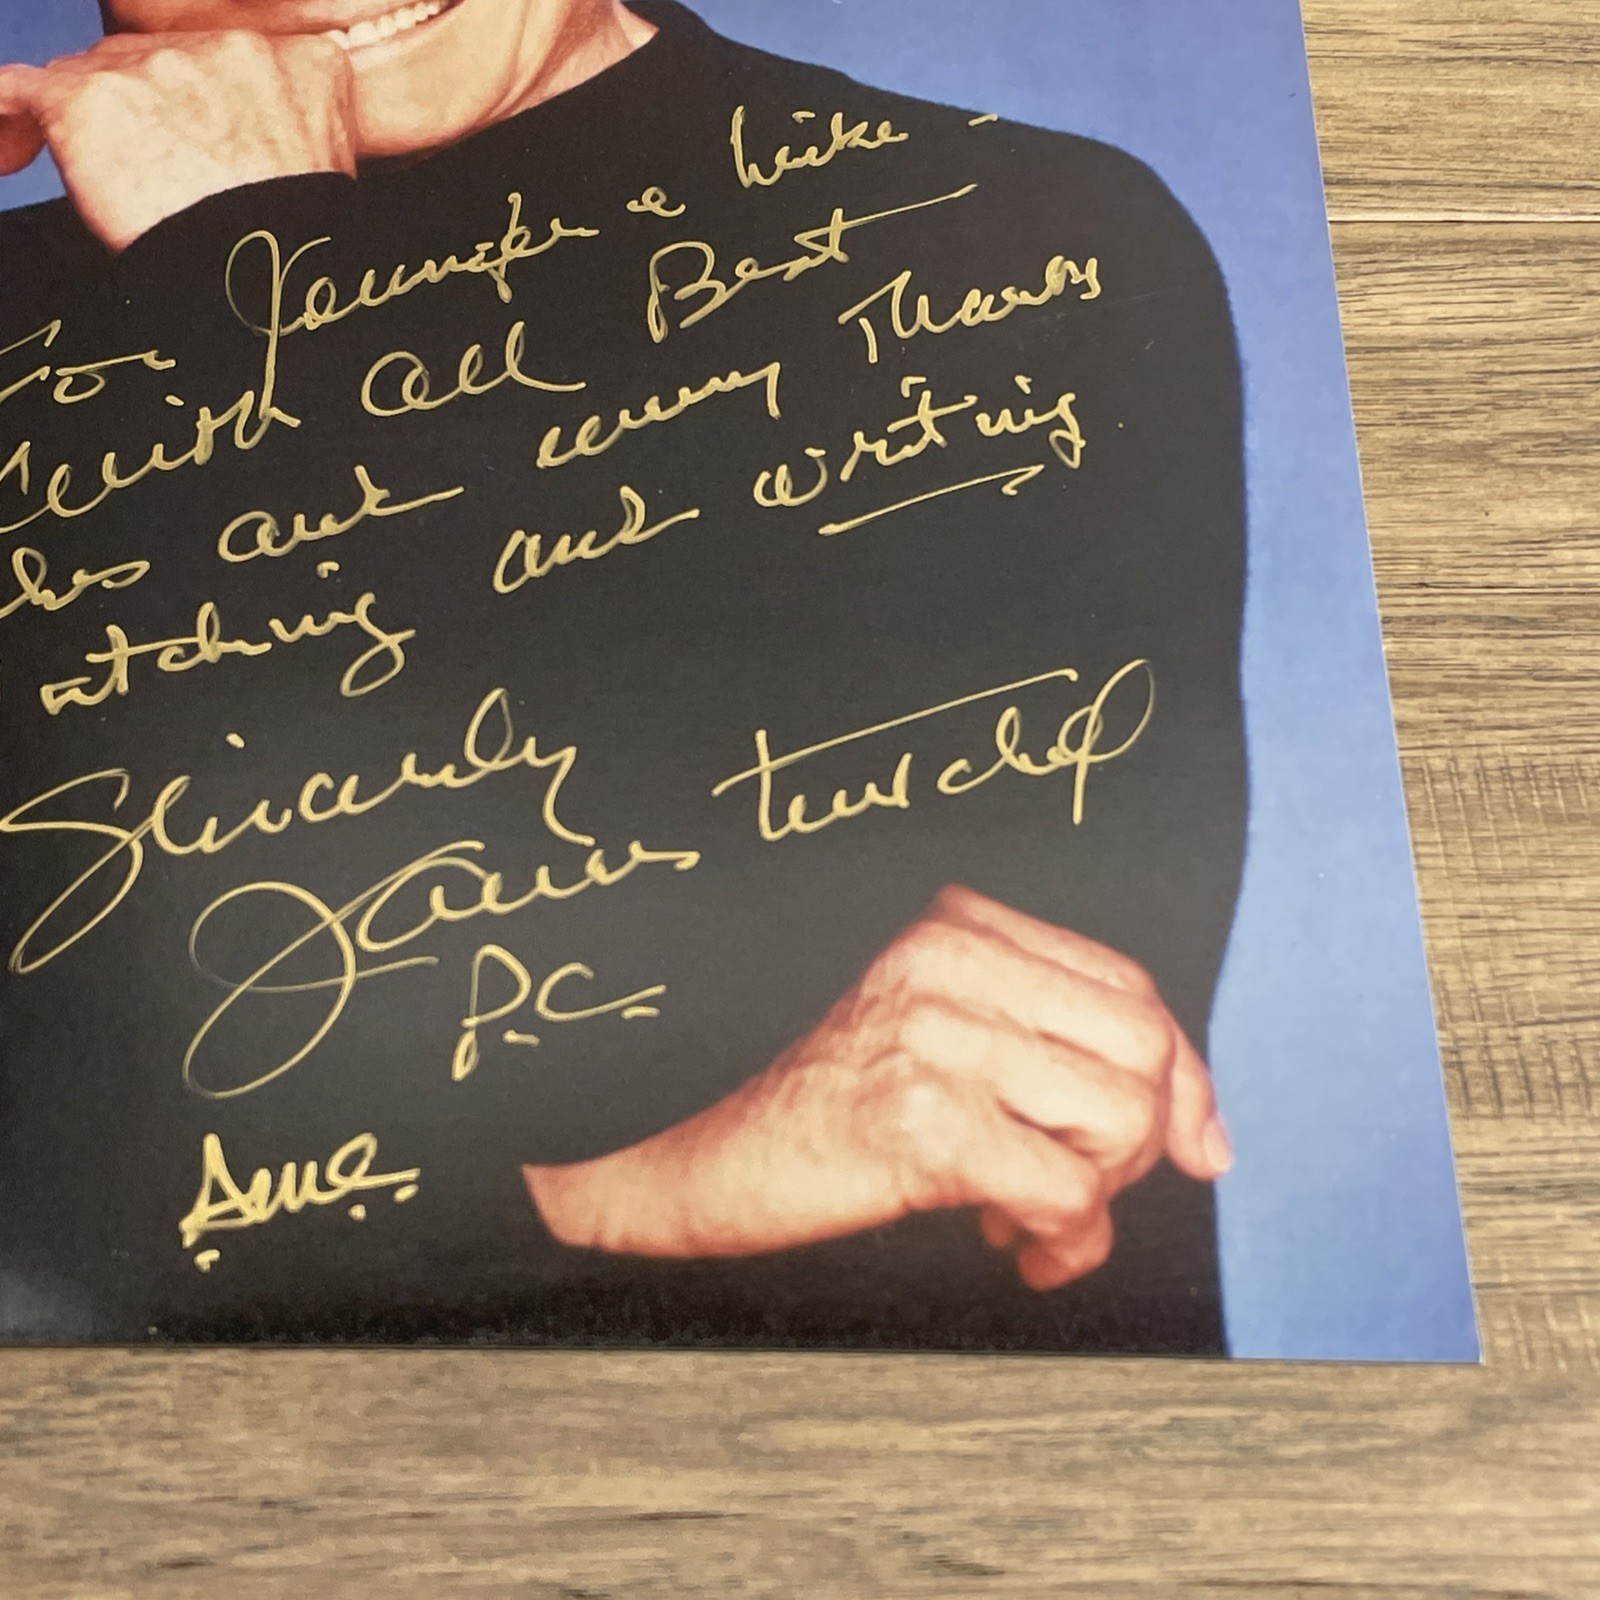 To Jennifer & Mike -
With all Best
hes and many Thanks
atching and writing
Sincerly
James Turchel
P.C.